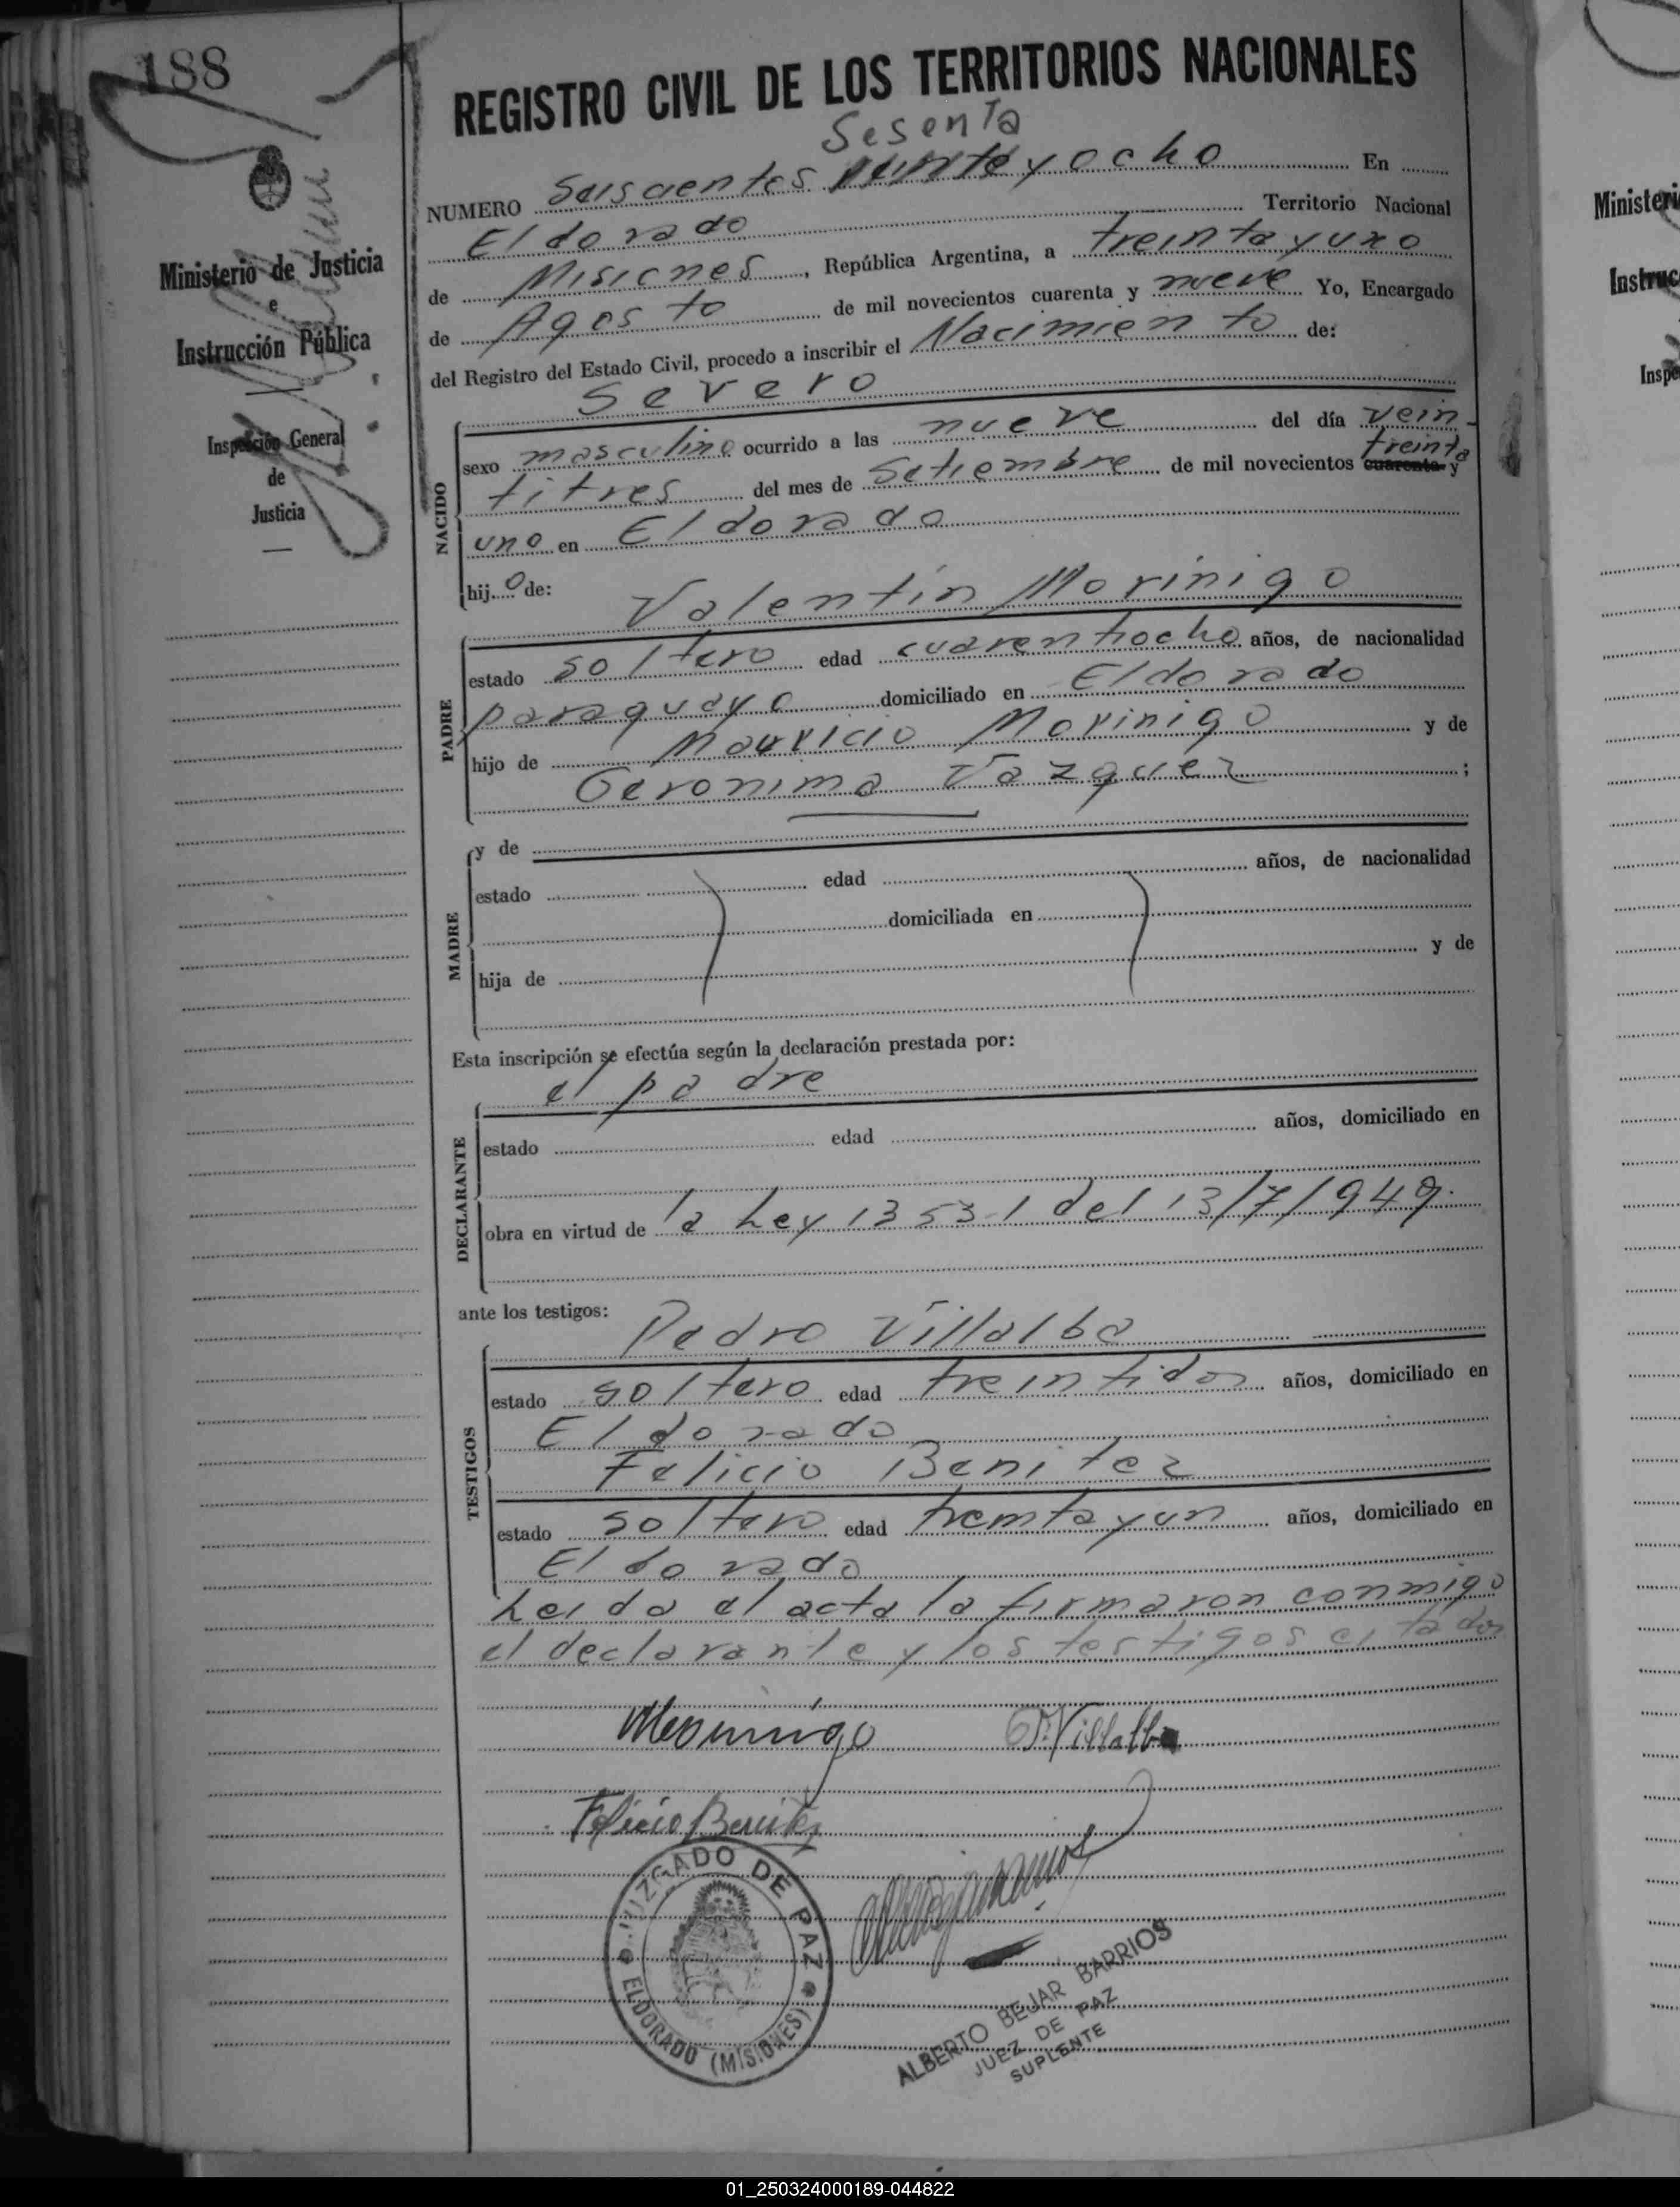 188
REGISTRO CIVIL DE LOS TERRITORIOS NACIONALES
Sesenta
NUMERO Seiscientos veinte y ocho En
El dorado Territorio Nacional
de Misiones, República Argentina, a treinta y uno
de Agosto de mil novecientos cuarenta y nueve Yo, Encargado
del Registro del Estado Civil, procedo a inscribir el Nacimiento de:
Severo
Ministerio de Justicia
e
Instrucción Pública
Inspección General
de
Justicia
NACIDO
sexo masculino ocurrido a las nueve del día vein-
treinta
titres del mes de Setiembre de mil novecientos cuarenta y
uno en El dorado
hijo de:
Valentín Morinigo
PADRE
estado soltero edad cuarentiocho años, de nacionalidad
paraguayo domiciliado en El dorado
hijo de Mauricio Morinigo y de
Geronima Vazquez ;
MADRE
y de
estado edad años, de nacionalidad
domiciliada en
hija de y de
Esta inscripción se efectúa según la declaración prestada por:
el padre
DECLARANTE
estado edad años, domiciliado en
obra en virtud de la Ley 13531 del 13/7/949.
ante los testigos:
Pedro Villalba
TESTIGOS
estado soltero edad treintidos años, domiciliado en
El dorado
Felicio Benitez
estado soltero edad treinta y un años, domiciliado en
El dorado
Leido el acta la firmaron conmigo
el declarante y los testigos citados
Morinigo P. Villalba
Felicio Benitez
JUZGADO DE PAZ
ELDORADO (MISIONES)
ALBERTO BEJAR BARRIOS
JUEZ DE PAZ
SUPLENTE
Ministeri
Instruc
Inspe
01_250324000189-044822